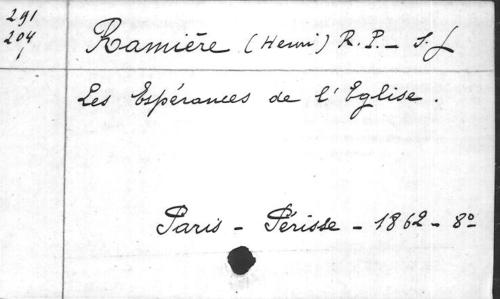 291
204
1
Ramière (Henri) R. P. - S. J
Les Espérances de l'Eglise.
Paris - Périsse - 1862 - 8º